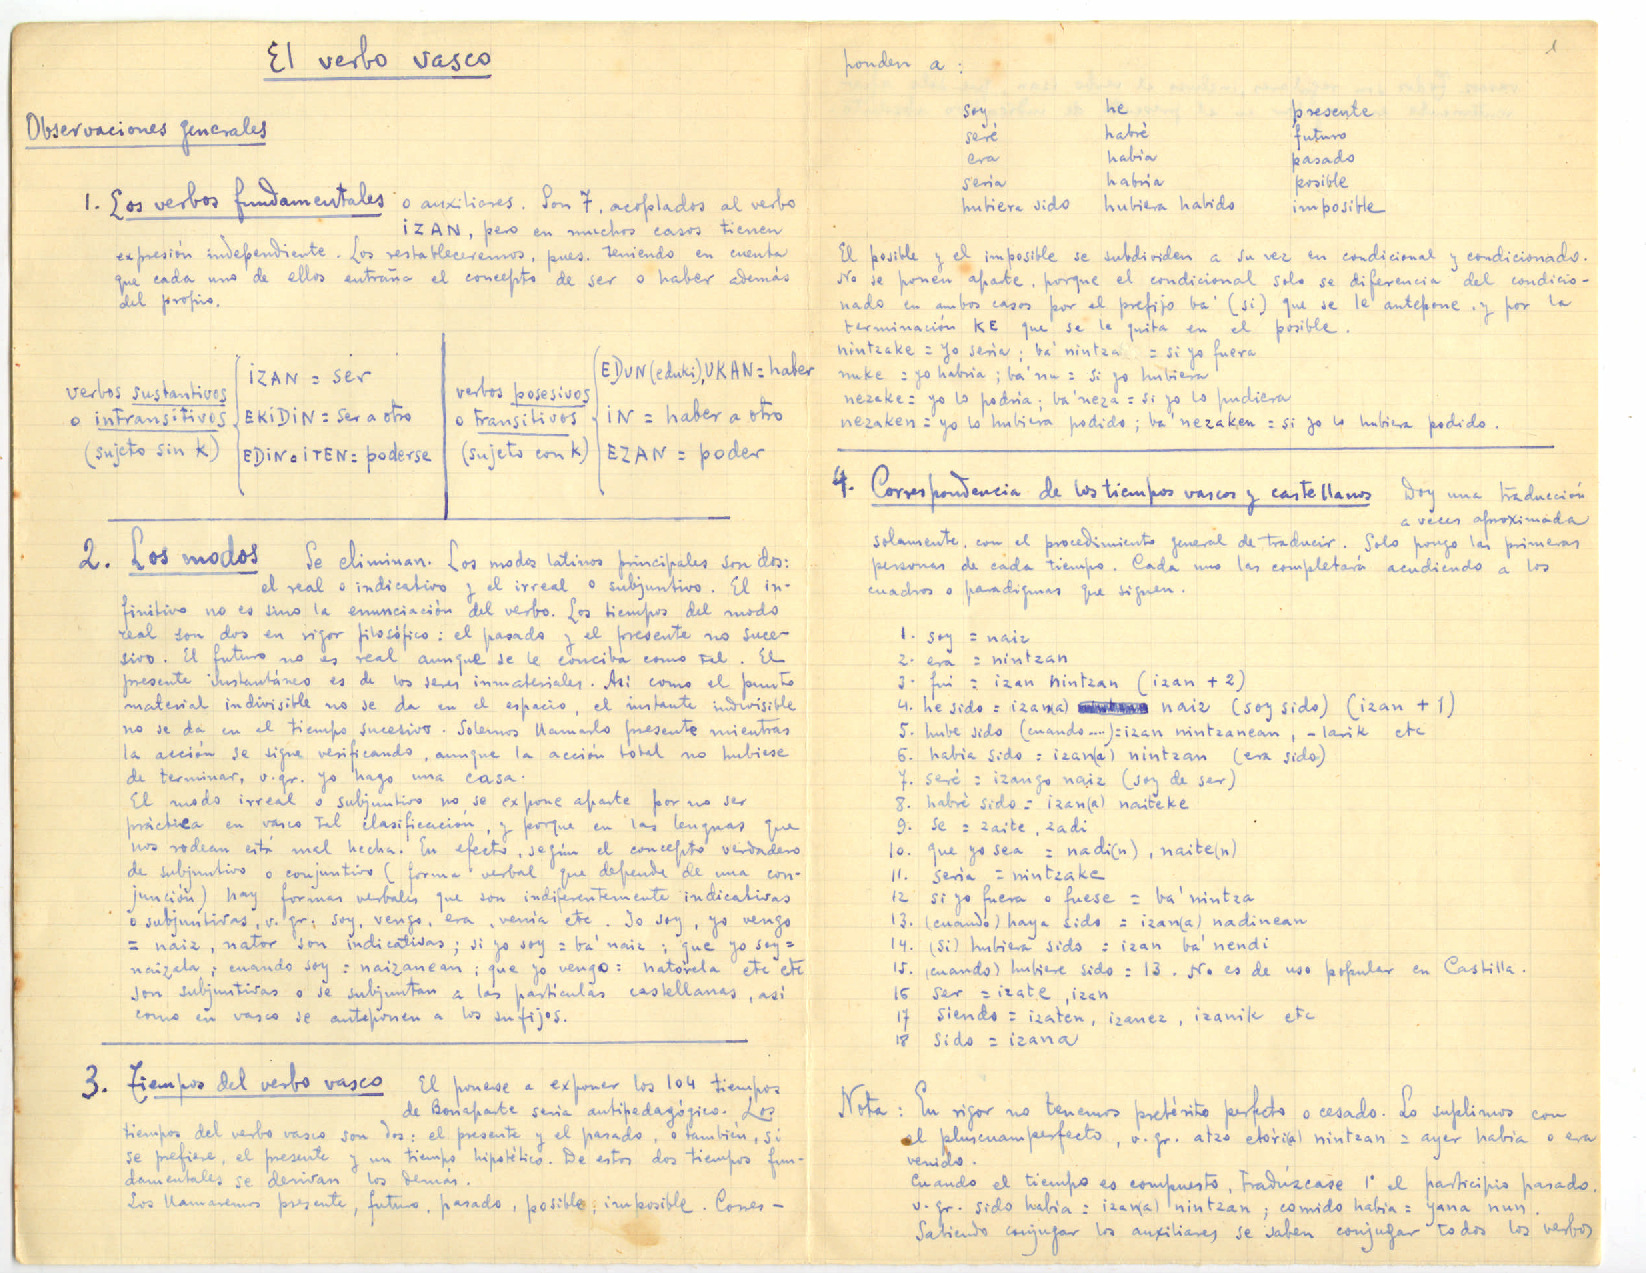 El verbo vasco
Observaciones generales
1. Los verbos fundamentales o auxiliares. Son 7, acoplados al verbo
IZAN, pero en muchos casos tienen
expresión independiente. Los restableceremos, pues, teniendo en cuenta
que cada uno de ellos entraña el concepto de ser o haber además
del propio.
verbos sustantivos
o intransitivos
(sujeto sin k)
IZAN = ser
EKIDIN = ser a otro
EDIN o ITEN = poderse
verbos posesivos
o transitivos
(sujeto con k)
EDUN (eduki), UKAN = haber
IN = haber a otro
EZAN = poder
2. Los modos Se eliminan. Los modos latinos principales son dos:
el real o indicativo y el irreal o subjuntivo. El in-
finitivo no es sino la enunciación del verbo. Los tiempos del modo
real son dos en rigor filosófico: el pasado y el presente no suce-
sivo. El futuro no es real aunque se le conciba como tal. El
presente instantáneo es de los seres inmateriales. Así como el punto
material indivisible no se da en el espacio, el instante indivisible
no se da en el tiempo sucesivo. Solemos llamarlo presente mientras
la acción se sigue verificando, aunque la acción total no hubiese
de terminar, v.gr. yo hago una casa.
El modo irreal o subjuntivo no se expone aparte por no ser
práctica en vasco tal clasificación, y porque en las lenguas que
nos rodean está mal hecha. En efecto, según el concepto verdadero
de subjuntivo o conjuntivo (forma verbal que depende de una con-
junción) hay formas verbales que son indiferentemente indicativas
o subjuntivas, v. gr. soy, vengo, era, venía etc. Yo soy, yo vengo
= naiz, nator son indicativas; si yo soy = ba' naiz; que yo soy =
naizela; cuando soy = naizanean; que yo vengo = natorela etc etc
son subjuntivas o se subjuntan a las partículas castellanas, así
como en vasco se anteponen a los sufijos.
3. Tiempos del verbo vasco El ponerse a exponer los 104 tiempos
de Bonaparte seria antipedagógico. Los
tiempos del verbo vasco son dos: el presente y el pasado, o también, si
se prefiere, el presente y un tiempo hipotético. De estos dos tiempos fun-
damentales se derivan los demás.
Los llamaremos presente, futuro, pasado, posible, imposible. Corres-
1
ponden a:
soy he presente
seré habré futuro
era habia pasado
seria habria posible
hubiera sido hubiera habido imposible
El posible y el imposible se subdividen a su vez en condicional y condicionado.
No se ponen aparte, porque el condicional solo se diferencia del condicio-
nado en ambos casos por el prefijo ba' (si) que se le antepone, y por la
terminación KE que se le quita en el posible.
nintzake = yo seria; ba' nintza = si yo fuera
nuke = yo habria; ba' nu = si yo hubiera
nezake = yo lo podria; ba' neza = si yo lo pudiera
nezaken = yo lo hubiera podido; ba' nezaken = si yo lo hubiera podido.
4. Correspondencia de los tiempos vascos y castellanos Doy una traducción
a veces aproximada
solamente, con el procedimiento general de traducir. Solo pongo las primeras
personas de cada tiempo. Cada uno las completará acudiendo a los
cuadros o paradigmas que siguen.
1. soy = naiz
2. era = nintzan
3. fui = izan nintzan (izan + 2)
4. he sido = izan(a) naiz (soy sido) (izan + 1)
5. hube sido (cuando ....) = izan nintzanean, -larik etc
6. habia sido = izan(a) nintzan (era sido)
7. seré = izango naiz (soy de ser)
8. habré sido = izan(a) naiteke
9. se = zaite, zadi
10. que yo sea = nadi(n), naite(n)
11. seria = nintzake
12 si yo fuera o fuese = ba' nintza
13. (cuando) haya sido = izan(a) nadinean
14. (si) hubiera sido = izan ba' nendi
15. (cuando) hubiere sido = 13. No es de uso popular en Castilla.
16 ser = izate, izan
17 siendo = izaten, izanez, izanik etc
18 sido = izana
Nota: En rigor no tenemos pretérito perfecto o cesado. Lo suplimos con
el pluscuamperfecto, v. gr. atzo etori(a) nintzan = ayer habia o era
venido.
Cuando el tiempo es compuesto, tradúzcase 1º el participio pasado.
v. gr. sido habia = izan(a) nintzan; comido habia = yana nun.
Sabiendo conjugar los auxiliares se saben conjugar todos los verbos